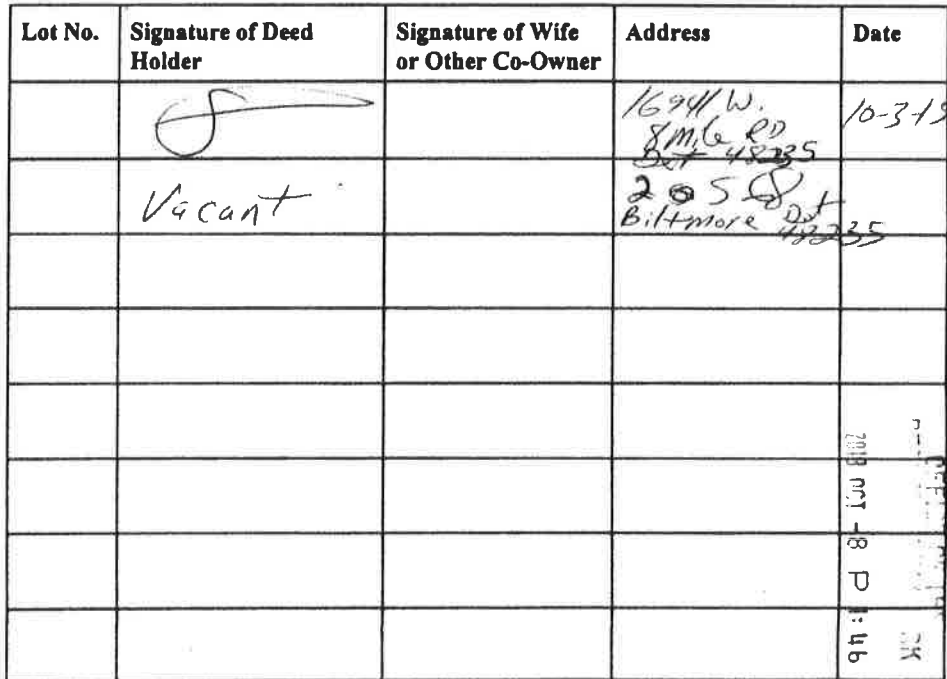 Lot No.
Signature of Deed
Holder
Signature of Wife
or Other Co-Owner
Address
Date
16941 W.
8 Mile RD
Det 48235
10-3-1
Vacant
2058
Biltmore Det
48235
2018 OCT -8 P 1:46